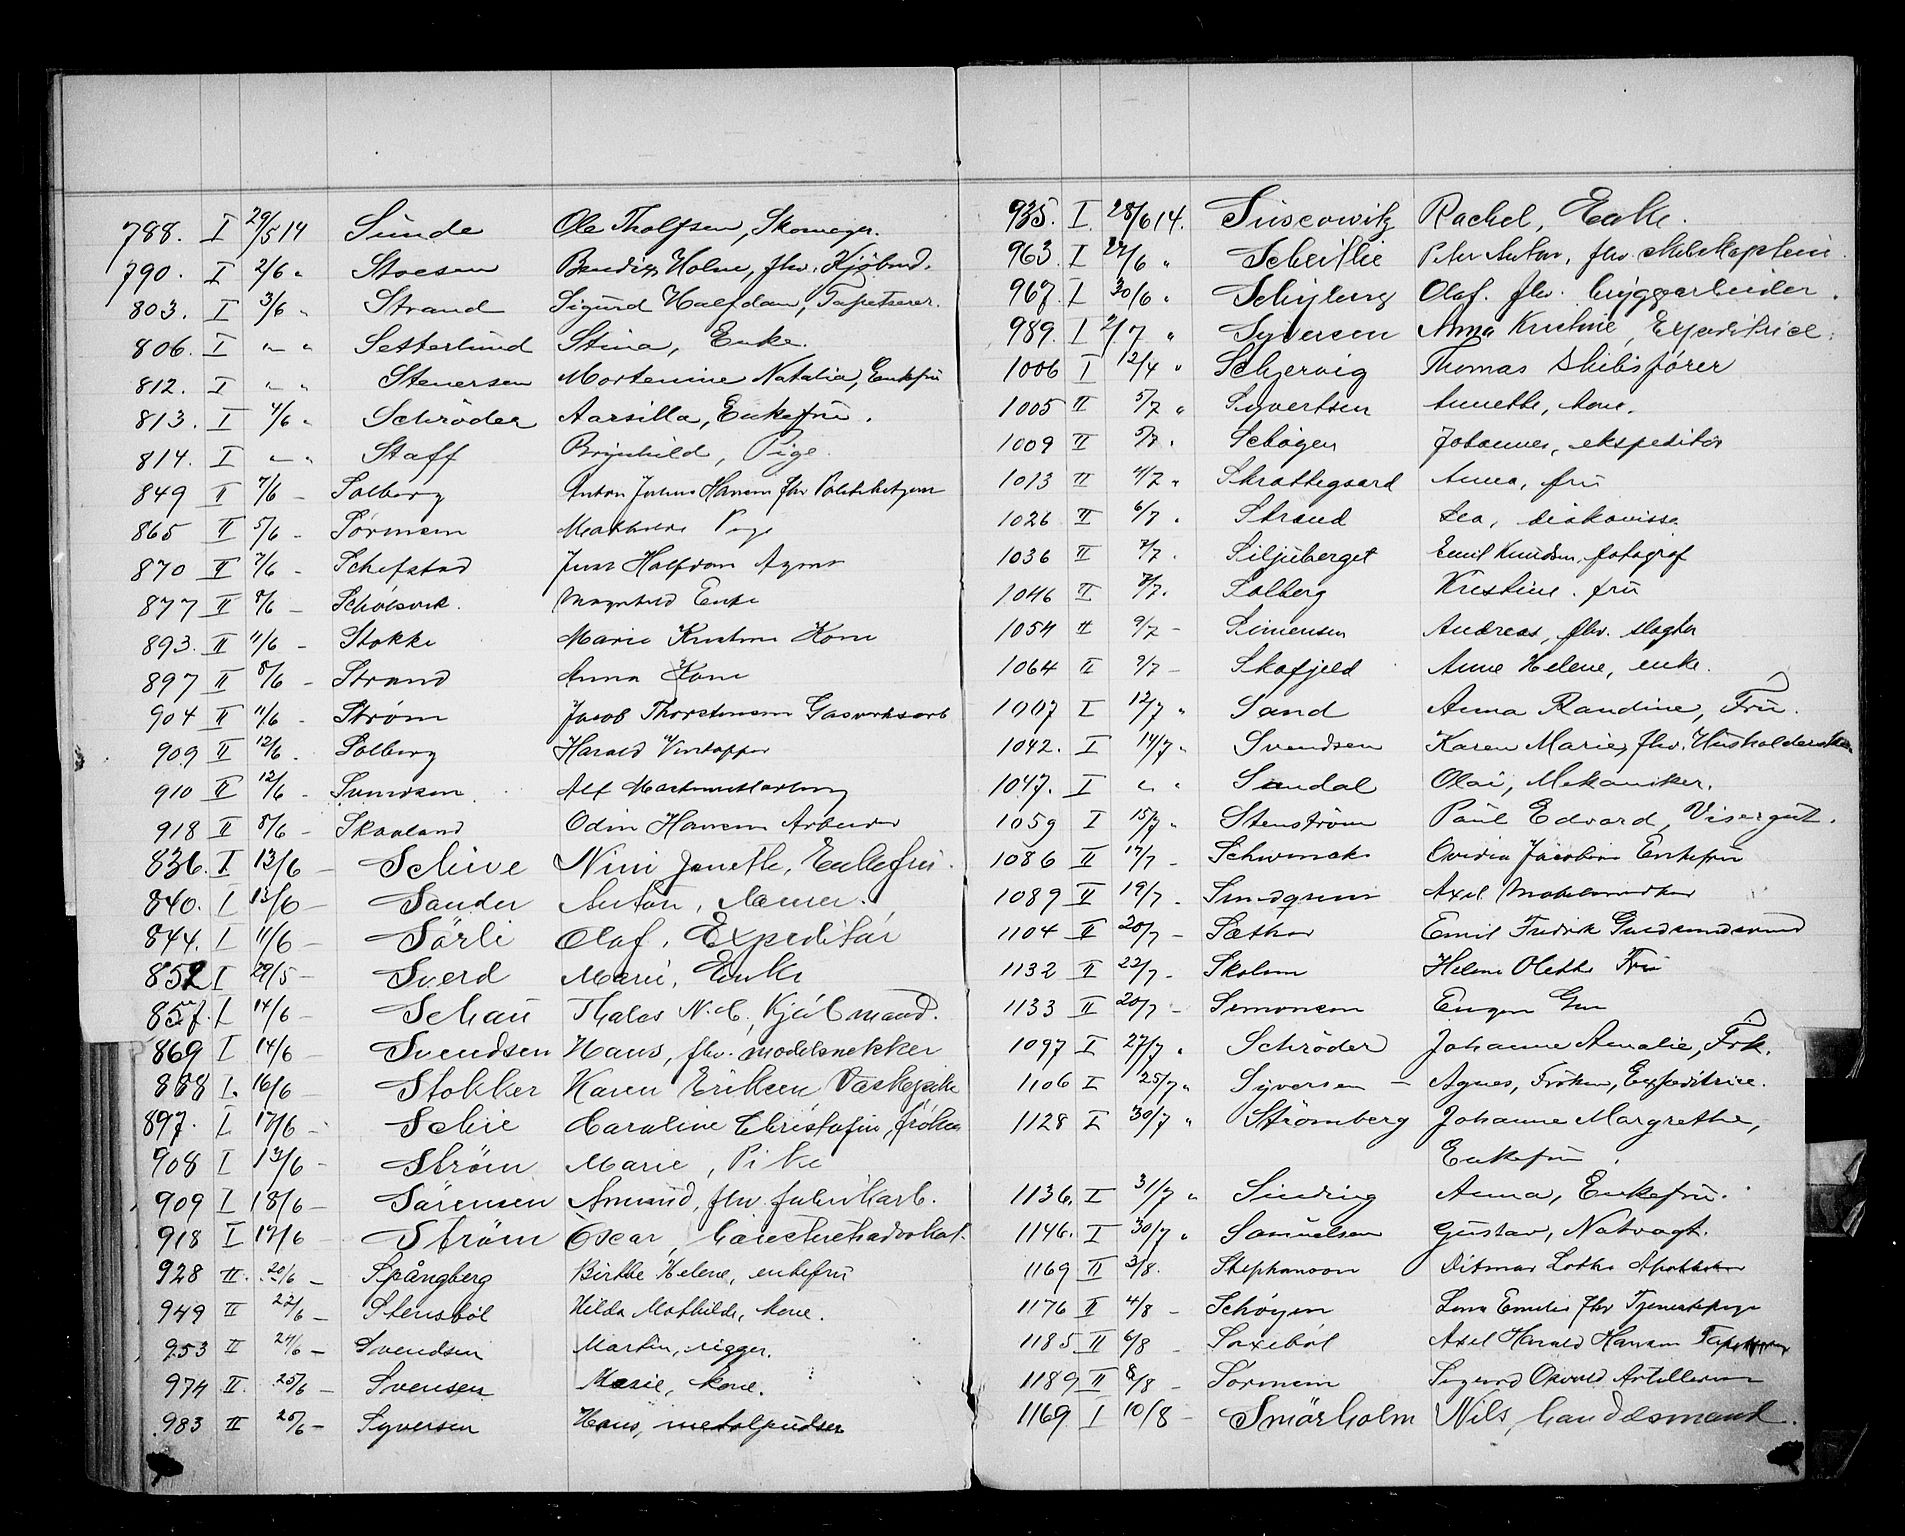 788. I 29/5 14 Sunde Ole Tholfsen, Skomager.
790. I 2/6 " Stoesen Bendix Holm, fhv. Kjöbmd.
803. I 3/6 " Strand Sigurd Halfdan, Tapetserer.
806. I " " Setterlund Stina, Enke.
812. I " " Stenersen Mortenine Natalia, Enkefru
813. I 4/6 " Schröder Aarsilla, Enkefru.
814. I " " Staff Brynhild, Pige.
849 II 7/6 - Solberg Anton Julius Hansen fhv Politibetjent
865 II 5/6 - Sørensen Mathilde Pige
870 II 7/6 - Schefstad Jens Halfdan Agent
877 II 8/6 - Magnhild Enke
893. II 11/6 - Stokke Marie Kristine Kone
897 II 8/6 - Strand Anna Kone
904 II 11/6 - Strøm Jacob Thorstensen Gasverksarb
909 II 12/6 - Solberg Harald Vintapper
910 II 12/6 - Svendsen Alf
918 II 8/6 - Skaaland Odin Hansen Arbeider
836. I 13/6 - Schive Nini Janette, Enkefru.
840. I 13/6 - Sander Anton, Murer.
844. I 11/6 - Sörli Olaf, Expeditör
852 I 29/5 - Sverd Marie, Enke
857. I 14/6 - Schau Thales N. C., Kjöbmand.
869 I 14/6 - Svendsen Hans, fhv. modelsnekker
888 I. 16/6 - Stokker Karen Eriksen Vaskepike
897. I. 17/6 - Schie Caroline Christofin, fröken
908 I 13/6 - Ström Marie, Pike
909 I 18/6 - Sörensen Amund, fhv. fabrikarb.
918 I 17/6 - Ström Oscar,
928 II. 20/6 - Spångberg Birthe Helene, enkefru
949 II 22/6 - Stensböl Hilda Mathilde, kone.
953 II 24/6 - Svendsen Martin, rigger.
974 II. 25/6 - Svensen Marie, kone.
983 II 25/6 - Syversen Hans, metalpudser
935. I. 28/6 14. Suscowitz Rachel, Enke.
963. I 27/6 " Scheitlie Peter Anton, fhv. skibskaptein.
967. I 30/6 " Schyberg Olaf. fhv. bryggearbeider.
989. I 2/7 " Syversen Anna Kristine, Expeditrice.
1006 I 12/4 " Schjervig Thomas Skibsfører
1005 II 5/7 " Syvertsen Annette, kone.
1009 II 5/7. Schøgen Johannes, ekspeditør
1013 II 4/7 " Skrattegaard Anna, fru
1026 II 6/7. Strand Lea, diakonisse
1036 II 7/7. Siljuberget Emil Knudsen, fotograf
1046 II 7/7. Solberg Kristine. fru
1054 II 9/7 - Simensen Andreas, fhv. slagter
1064 II 9/7 - Skofjeld Anne Helene, enke.
1007 I 12/7 " Sand Anna Randine, Fru.
1042. I 14/7 " Svendsen Karen Marie, fhv. Husholderske
1047. I " " Sandal Olai, Mekaniker.
1059 I 15/7 " Stenström Paul Edvard, Visergut.
1086 II 17/7 - Ovidia Jacobine Enkefru
1089 II 19/7 - Axel
1104 II 20/7 - Sæther Emil Fredrik
1132 II 22/7 - Skolem Helene Olette Fru
1133 II 20/7 - Simonsen Eugen
1097 I 27/7 " Schrøder Johanne Amalie, Frk.
1106 I 25/7 " Syversen - Agnes, Frøken, Expeditrice.
1128 I 30/7 " Strömberg Johanne Margrethe,
Enkefru.
1136. I 31/7 " Sinding Anna, Enkefru.
1146. I 30/7 " Samuelsen Gustav, Natvagt.
1169 II 3/8. Stephanson Ditmar Lothe Apotheker
1176 II 4/8 - Schøyen Lina Emilie fhv Tjenestepige
1185 II 6/8 - Saxebøl Axel Harald Hansen Tapetserer
1189 II 8/8 - Sørensen Sigurd Osvald
1169. I 10/8 - Smörholm Nils, Landsmand.